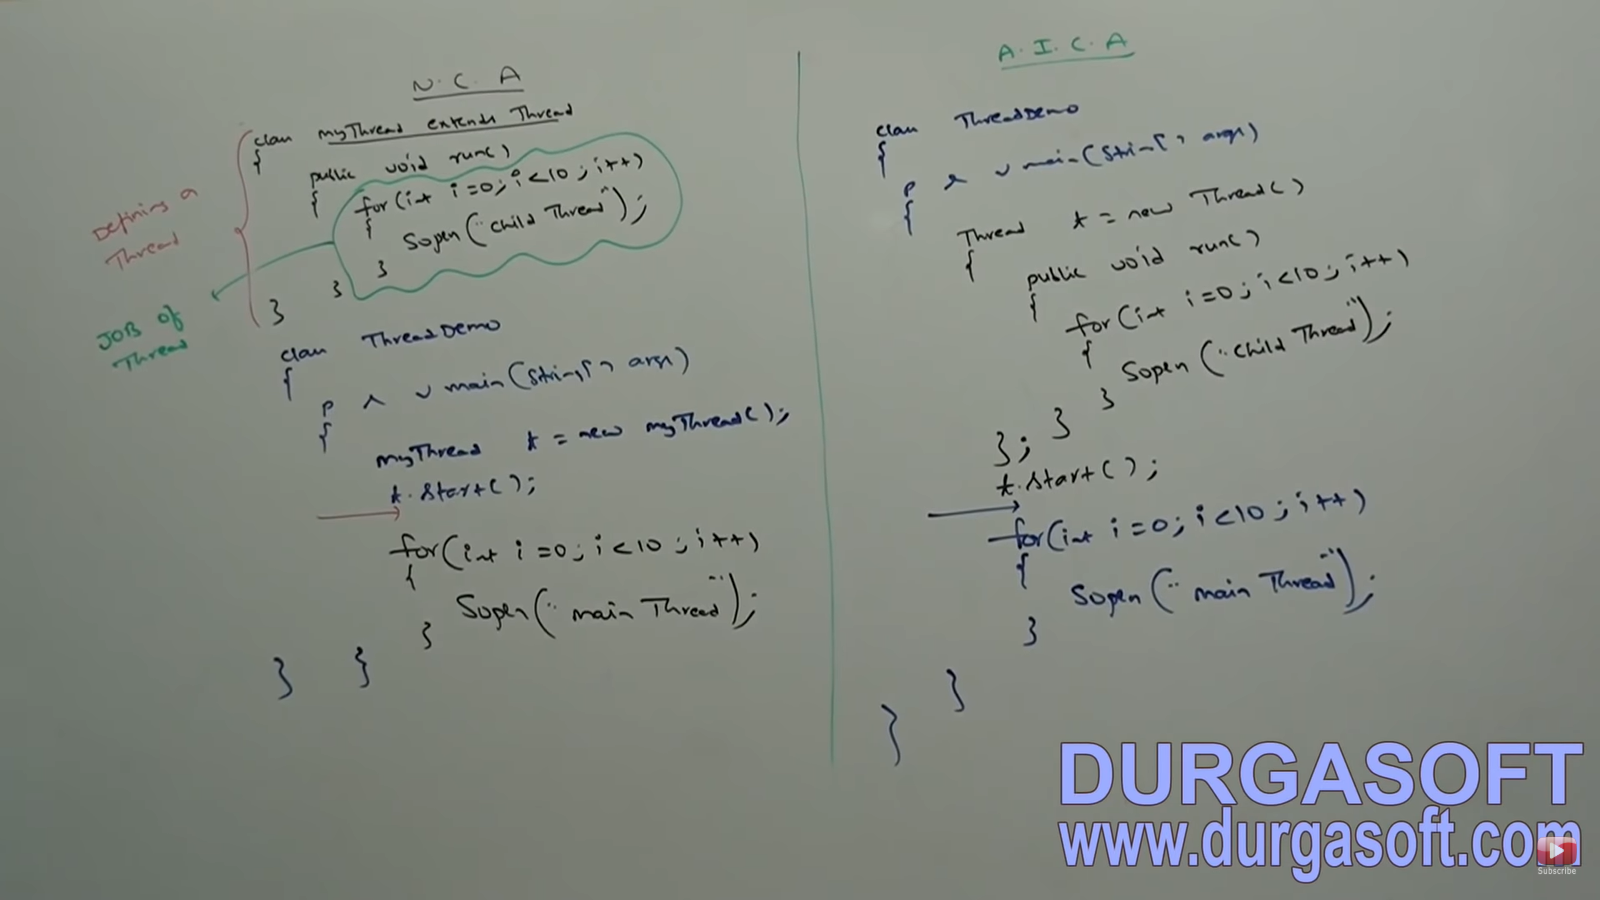 N.C.A
class myThread extends Thread
{
public void run()
{
for(int i=0; i<10; i++)
{
Sopln("child Thread");
}
}
}
Defining a
Thread
JOB of
Thread
class ThreadDemo
{
p s v main(String[] args)
{
myThread t = new myThread();
t.start();
for(int i=0; i<10; i++)
{
Sopln("main Thread");
}
}
}
A.I.C.A
class ThreadDemo
{
p s v main(String[] args)
{
Thread t = new Thread()
{
public void run()
{
for(int i=0; i<10; i++)
{
Sopln("child Thread");
}
}
};
t.start();
for(int i=0; i<10; i++)
{
Sopln("main Thread");
}
}
}
DURGASOFT
www.durgasoft.com
Subscribe